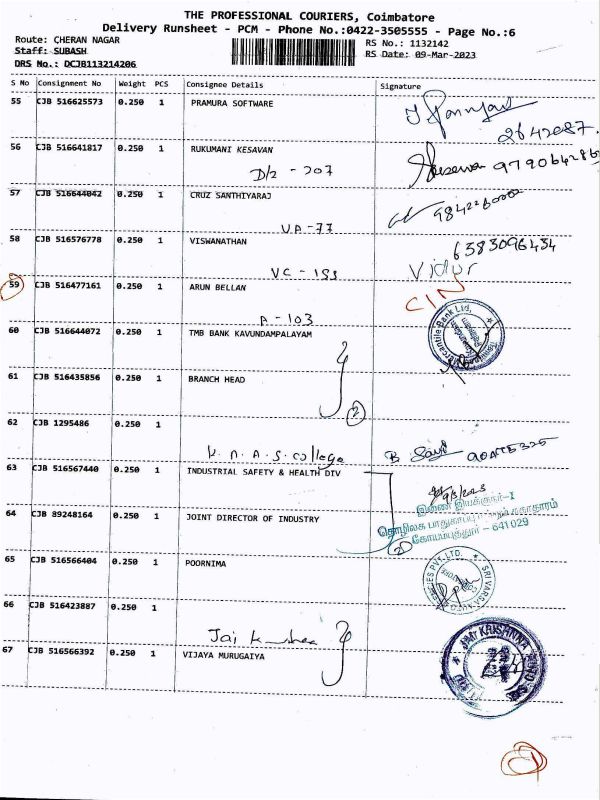 THE PROFESSIONAL COURIERS, Coimbatore
Delivery Runsheet - PCM - Phone No.:0422-3505555 - Page No.:6
Route: CHERAN NAGAR
RS No.: 1132142
Staff: SUBASH
RS Date: 09-Mar-2023
DRS No.: DCJB113214206
S No Consignment No Weight PCS Consignee Details Signature
55 CJB 516625573 0.250 1 PRAMURA SOFTWARE
2642087.
56 CJB 516641817 0.250 1 RUKUMANI KESAVAN
D/2 - 207
57 CJB 516644042 0.250 1 CRUZ SANTHIYARAJ
VA-77
58 CJB 516576778 0.250 1 VISWANATHAN
6383096434
Vidyr
VC - 193
59 CJB 516477161 0.250 1 ARUN BELLAN
CIN
A - 103
60 CJB 516644072 0.250 1 TMB BANK KAVUNDAMPALAYAM
Mercantile Bank Ltd,
61 CJB 516435856 0.250 1 BRANCH HEAD
2
62 CJB 1295486 0.250 1
K. N. A. S. College
63 CJB 516567440 0.250 1 INDUSTRIAL SAFETY & HEALTH DIV
9/3/2023
இணை இயக்குநர்-I
64 CJB 89248164 0.250 1 JOINT DIRECTOR OF INDUSTRY
கோயம்புத்தூர் - 641029
2
65 CJB 516566404 0.250 1 POORNIMA
66 CJB 516423887 0.250 1
67 CJB 516566392 0.250 1 VIJAYA MURUGAIYA